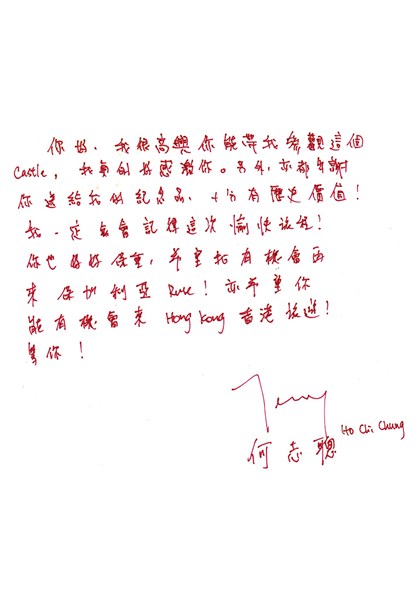 你好、我很高興你能帶我參觀這個
Castle, 我真的好感謝你。另外, 亦都多謝
你送給我的紀念品、十分有歷史價值!
我一定會記得這次愉快旅程!
你也好好保重, 希望我有機會再
來 保加利亞 Ruse! 亦希望你
能有機會來 Hong Kong 香港旅遊!
等你!
Terry
何志聰 Ho Chi Chung